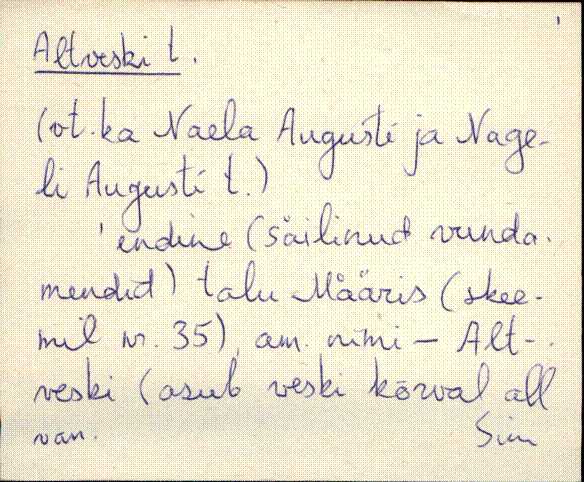 Altveski t.
(vt. ka Naela Augusti ja Nage-
li Augusti t.)
'endine (säilinud vunda-
mendid) talu Määris (skee-
mil nr. 35), am. nimi - Alt-
veski (asub veski kõrval all
van.